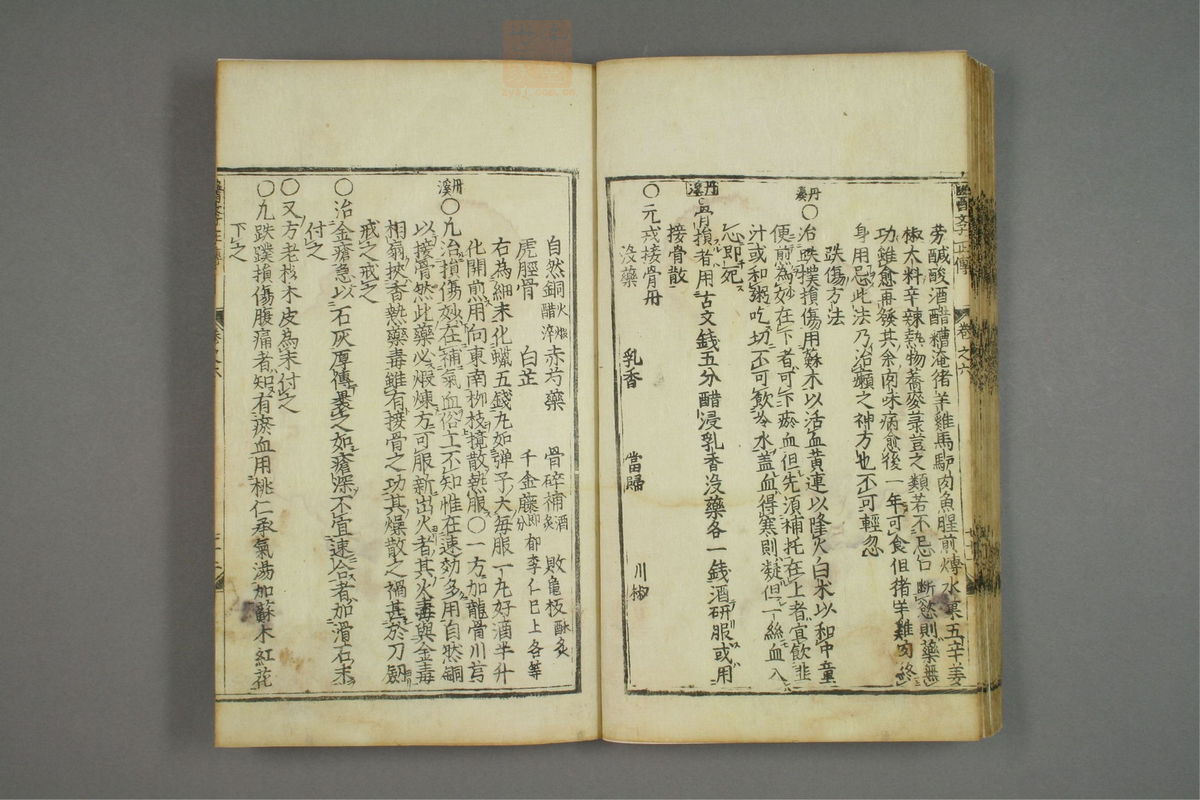 醫學正傳 卷之六
勞醎酸酒醋糟淹猪羊雞馬馿肉魚腥煎煿水菓五辛姜
椒大料辛辣熱物蕎麥菉豆之類若不忌口断慾則藥無
功雖愈再發其余肉味病愈後一年可食但猪羊雞肉終
身用忌此法乃治癩之神方也不可輕忽
跌傷方法
丹溪○治跌撲損傷用蘇木以活血黄連以降火白朮以和中童
便煎為妙在下者可下瘀血但先須補托在上者宜飲韭
汁或和粥吃切不可飲冷水盖血得寒則凝但一絲血入
心即死
丹溪骨損者用古文錢五分醋浸乳香没藥各一錢酒研服或用
接骨散
○元戎接骨丹
没藥 乳香 當歸 川椒
自然銅火煅醋淬 赤芍藥 骨碎補酒炙 敗龜板酥炙
虎脛骨 白芷 千金藤即郁李仁巳上各等分
右為細末化蠟五錢丸如弹子大毎服一丸好酒半升
化開煎用向東南柳枝攪散熱服○一方加龍骨川芎
丹溪○凡治損傷妙在補氣血俗工不知惟在速効多用自然銅
以接骨然此藥必煅煉方可服新出火者其火毒與金毒
相扇挾香熱藥毒雖有接骨之功其燥散之禍甚於刀劔
戒之戒之
○治金瘡急以石灰厚傅裹之如瘡深不宜速合者加滑石末
付之
○又方老杉木皮為末付之
○凡跌蹼損傷腹痛者知有瘀血用桃仁承氣湯加蘇木紅花
下之
醫學正傳 卷之六